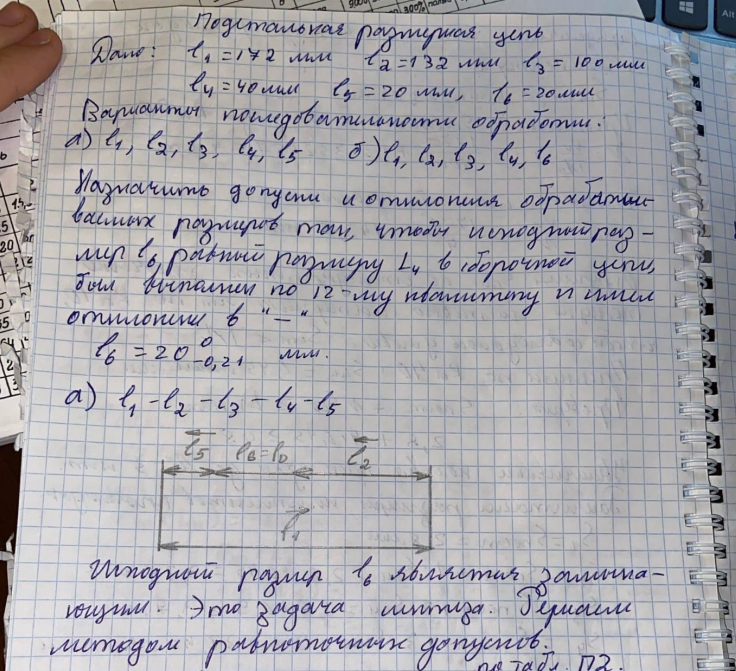 Подетальная размерная цепь
Дано: l₁ = 172 мм l₂ = 132 мм l₃ = 100 мм
l₄ = 40 мм l₅ = 20 мм, l₆ = 20 мм
Варианты последовательности обработки:
а) l₁, l₂, l₃, l₄, l₅ б) l₁, l₂, l₃, l₄, l₆
Назначить допуски и отклонения обрабаты-
ваемых размеров так, чтобы исходный раз-
мер l₆ равный размеру L₄ в сборочной цепи,
был выполнен по 12-му квалитету и имел
отклонение в "—"
l₆ = 20 0 -0,21 мм.
а) l₁ - l₂ - l₃ - l₄ - l₅
l₅ l₆ = l₀ l₂
l₁
Исходный размер l₆ является замыка-
ющим. Это задача синтеза. Решаем
методом равноточных допусков.
по табл. П2.
Alt